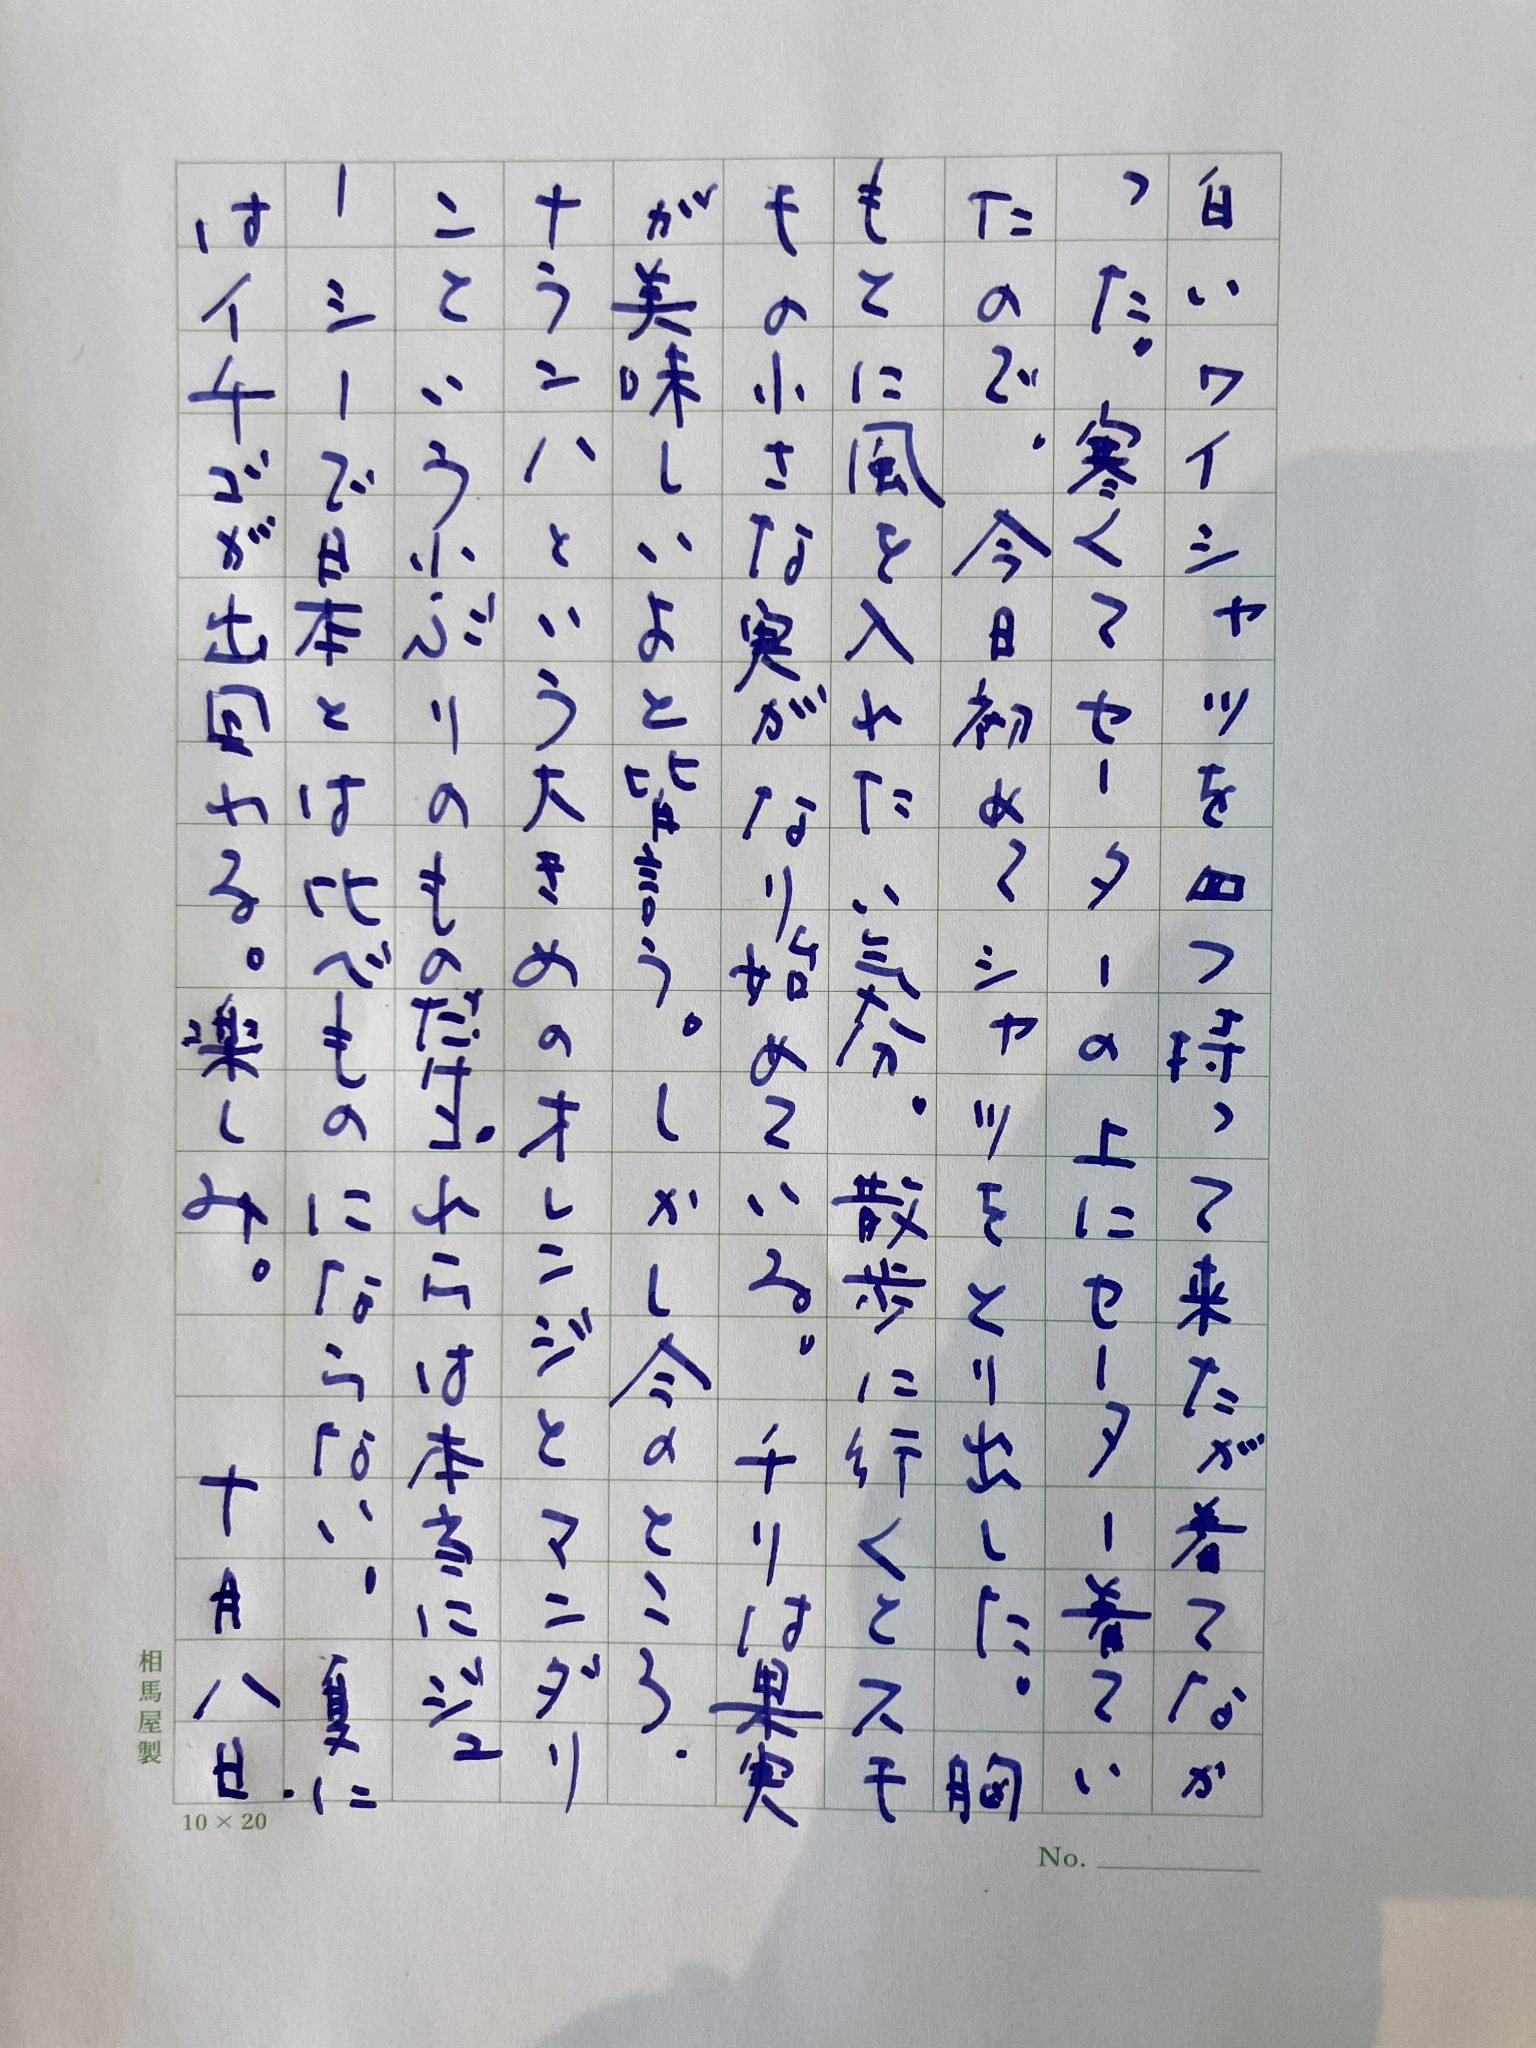 白いワイシャツを四つ持って来たが着てなか
った。寒くてセーターの上にセーター着てい
たので、今日初めてシャツをとり出した。胸
もとに風を入れたい気分。散歩に行くとスモ
モの小さな実がなり始めている。チリは果実
が美味しいよと皆言う。しかし今のところ、
ナランハという大きめのオレンジとマンダリ
ンという小ぶりのものだけ。これらは本当にジュ
ーシーで日本とは比べものにならない、夏に
はイチゴが出回れる。楽しみ。 十月八日.
相馬屋製
10×20
No.